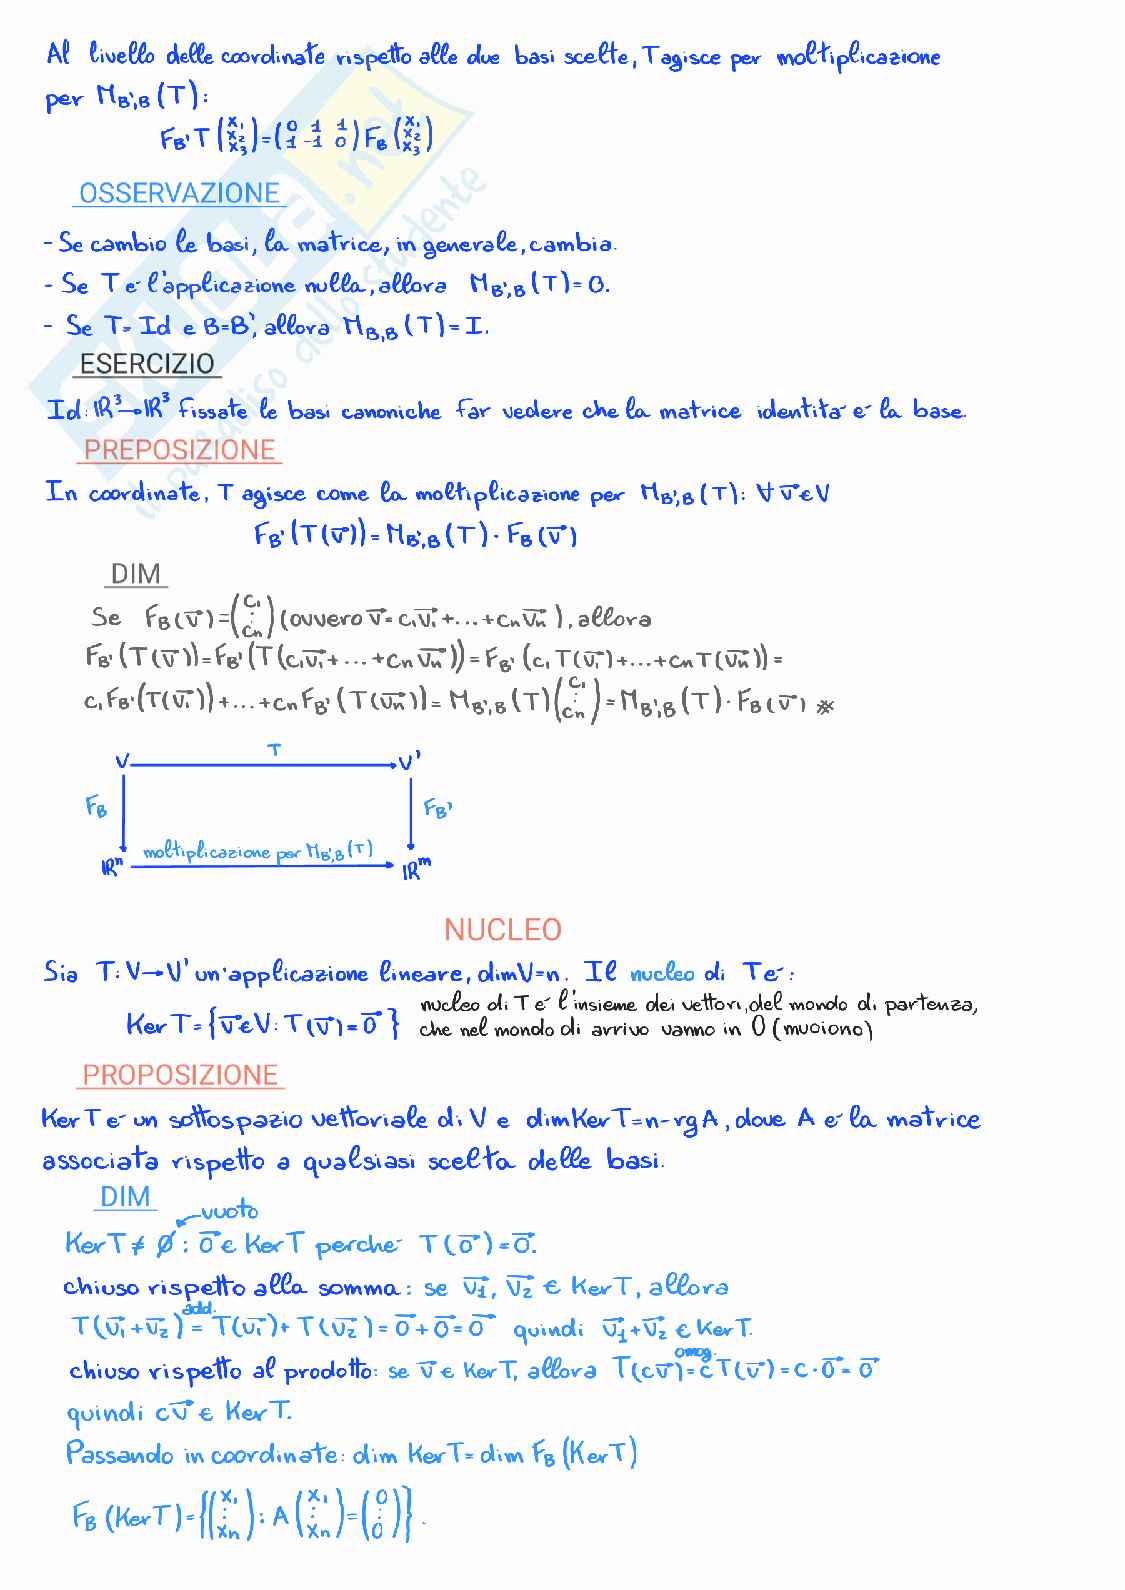 Al livello delle coordinate rispetto alle due basi scelte, T agisce per moltiplicazione
per M_B',B (T):
F_B' T (x₁ x₂ x₃) = (0 1 1 / 1 -1 0) F_B (x₁ x₂ x₃)
OSSERVAZIONE
- Se cambio le basi, la matrice, in generale, cambia.
- Se T é l'applicazione nulla, allora M_B',B (T) = 0.
- Se T = Id e B=B', allora M_B,B (T) = I.
ESERCIZIO
Id: ℝ³→ℝ³ fissate le basi canoniche far vedere che la matrice identitá é la base.
PREPOSIZIONE
In coordinate, T agisce come la moltiplicazione per M_B',B (T): ∀ v⃗ ∈ V
F_B' (T(v⃗)) = M_B',B (T) · F_B (v⃗)
DIM
Se F_B (v⃗) = (c₁ ⋮ cₙ) (ovvero v⃗ = c₁v⃗₁ + ... + cₙv⃗ₙ), allora
F_B' (T(v⃗)) = F_B' (T(c₁v⃗₁ + ... + cₙv⃗ₙ)) = F_B' (c₁T(v⃗₁) + ... + cₙT(v⃗ₙ)) =
c₁F_B' (T(v⃗₁)) + ... + cₙF_B' (T(v⃗ₙ)) = M_B',B (T) (c₁ ⋮ cₙ) = M_B',B (T) · F_B (v⃗) ※
T
V V'
F_B F_B'
moltiplicazione per M_B',B (T)
ℝⁿ ℝᵐ
NUCLEO
Sia T: V→V' un'applicazione lineare, dimV=n. Il nucleo di T é:
Ker T = {v⃗ ∈ V: T(v⃗) = 0⃗} nucleo di T é l'insieme dei vettori, del mondo di partenza,
che nel mondo di arrivo vanno in 0 (muoiono)
PROPOSIZIONE
Ker T é un sottospazio vettoriale di V e dim Ker T = n - rg A, dove A é la matrice
associata rispetto a qualsiasi scelta delle basi.
DIM
vuoto
Ker T ≠ ∅: 0⃗ ∈ Ker T perché T(0⃗) = 0⃗.
chiuso rispetto alla somma: se v⃗₁, v⃗₂ ∈ Ker T, allora
add.
T(v⃗₁+v⃗₂) = T(v⃗₁) + T(v⃗₂) = 0⃗ + 0⃗ = 0⃗ quindi v⃗₁+v⃗₂ ∈ Ker T.
omog.
chiuso rispetto al prodotto: se v⃗ ∈ Ker T, allora T(cv⃗) = cT(v⃗) = c · 0⃗ = 0⃗
quindi cv⃗ ∈ Ker T.
Passando in coordinate: dim Ker T = dim F_B (Ker T)
F_B (Ker T) = {(x₁ ⋮ xₙ) : A (x₁ ⋮ xₙ) = (0 ⋮ 0)}.
SKUOLA.net
il paradiso dello studente